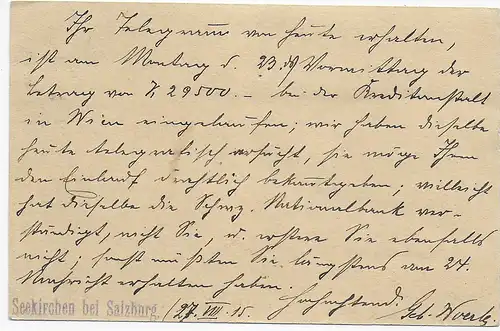 Ihr Telegramm von heute erhalten,
ist am Montag d. 23. ds Vormittag der
Betrag von K 29500.- bei der Kreditanstalt
in Wien eingelaufen; wir haben dieselbe
heute telegrafisch ersucht, sie möge Ihnen
den Einlauf drahtlich bekanntgeben; vielleicht
hat dieselbe die Schwz. Nationalbank ver-
ständigt, nicht Sie, u. erstere Sie ebenfalls
nicht; sonst müßten Sie längstens am 24.
Nachricht erhalten haben.
Hochachtend:
Seekirchen bei Salzburg, /27. VIII. 15. Geb. Woerle.